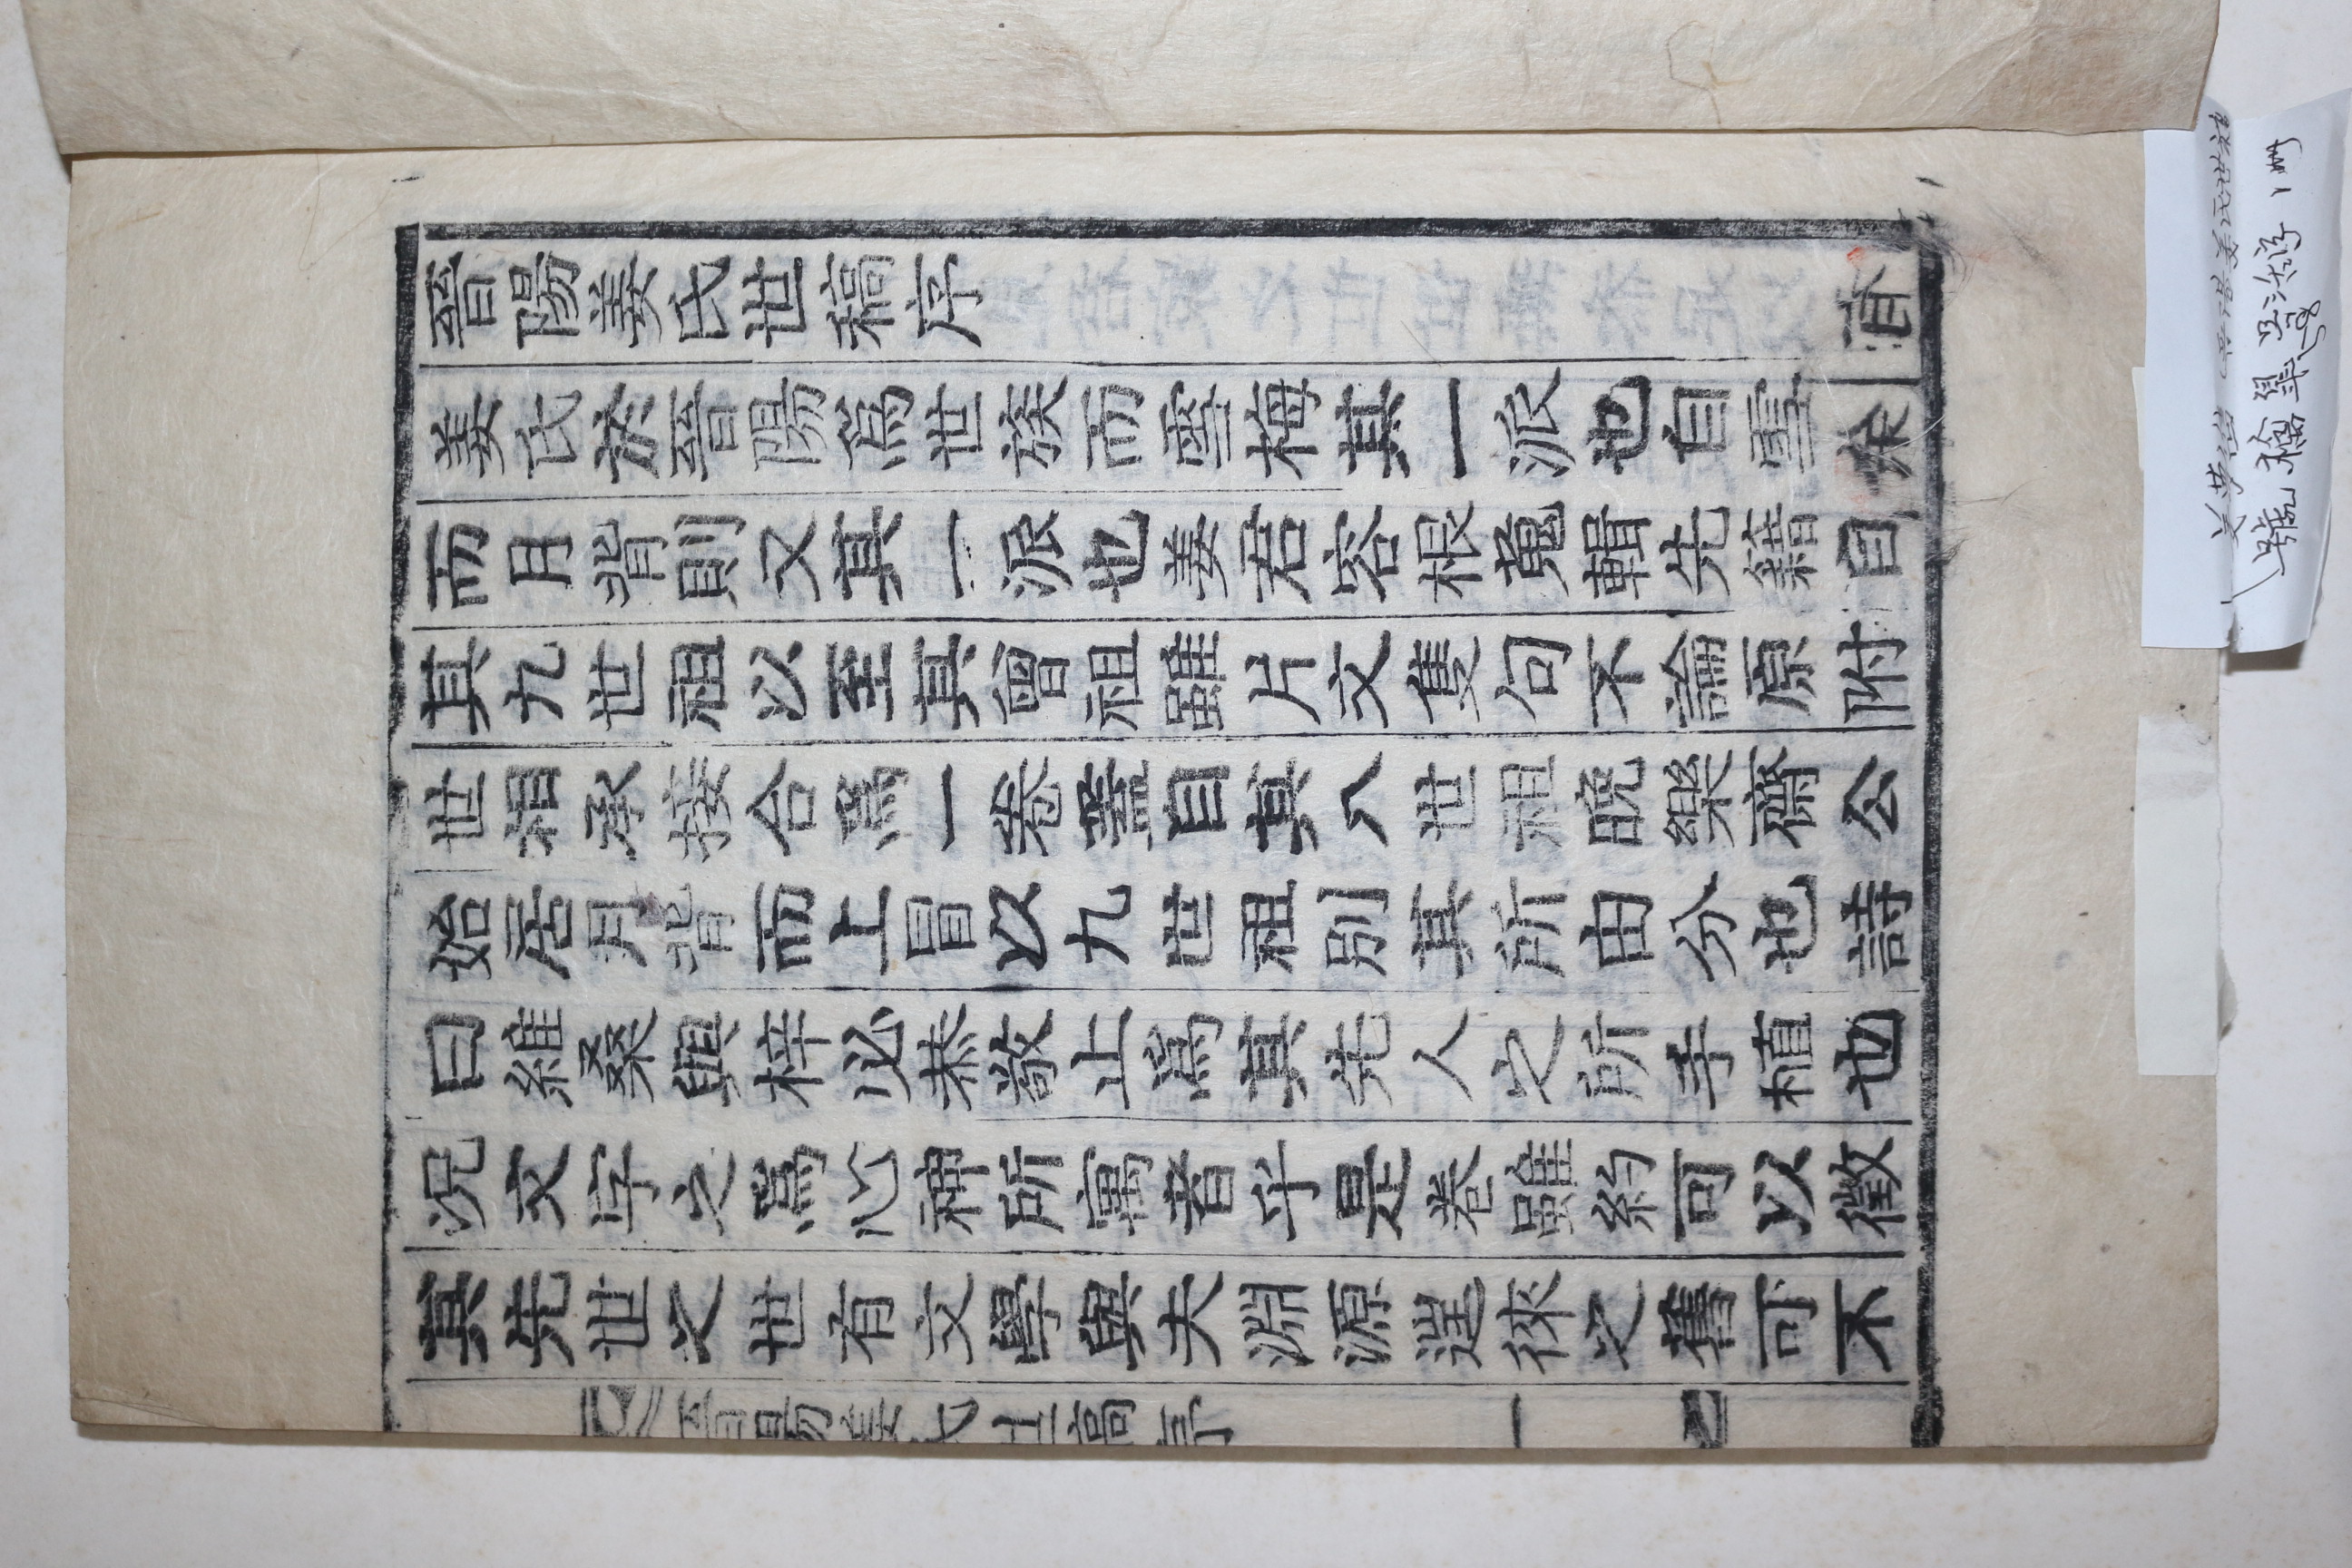 晉陽姜氏世稿序
姜氏於晉陽爲世族而雪梅其一派也自雪
而月背則又其一派也姜君容根蒐輯先籍自
其九世祖以至其曾祖雖片文隻句不論原附
世相承接合爲一卷蓋自其八世祖晩樂齋公
始居月背而上冒以九世祖別其所由分也詩
曰維桑與梓必恭敬止爲其先人之所手植也
況文字之爲心神所寓者乎是卷雖約可以徵
其先世之世有文學與夫淵源遑徠之舊可不
晉陽姜氏世稿序 一
晉陽姜氏世稿
活字 1冊